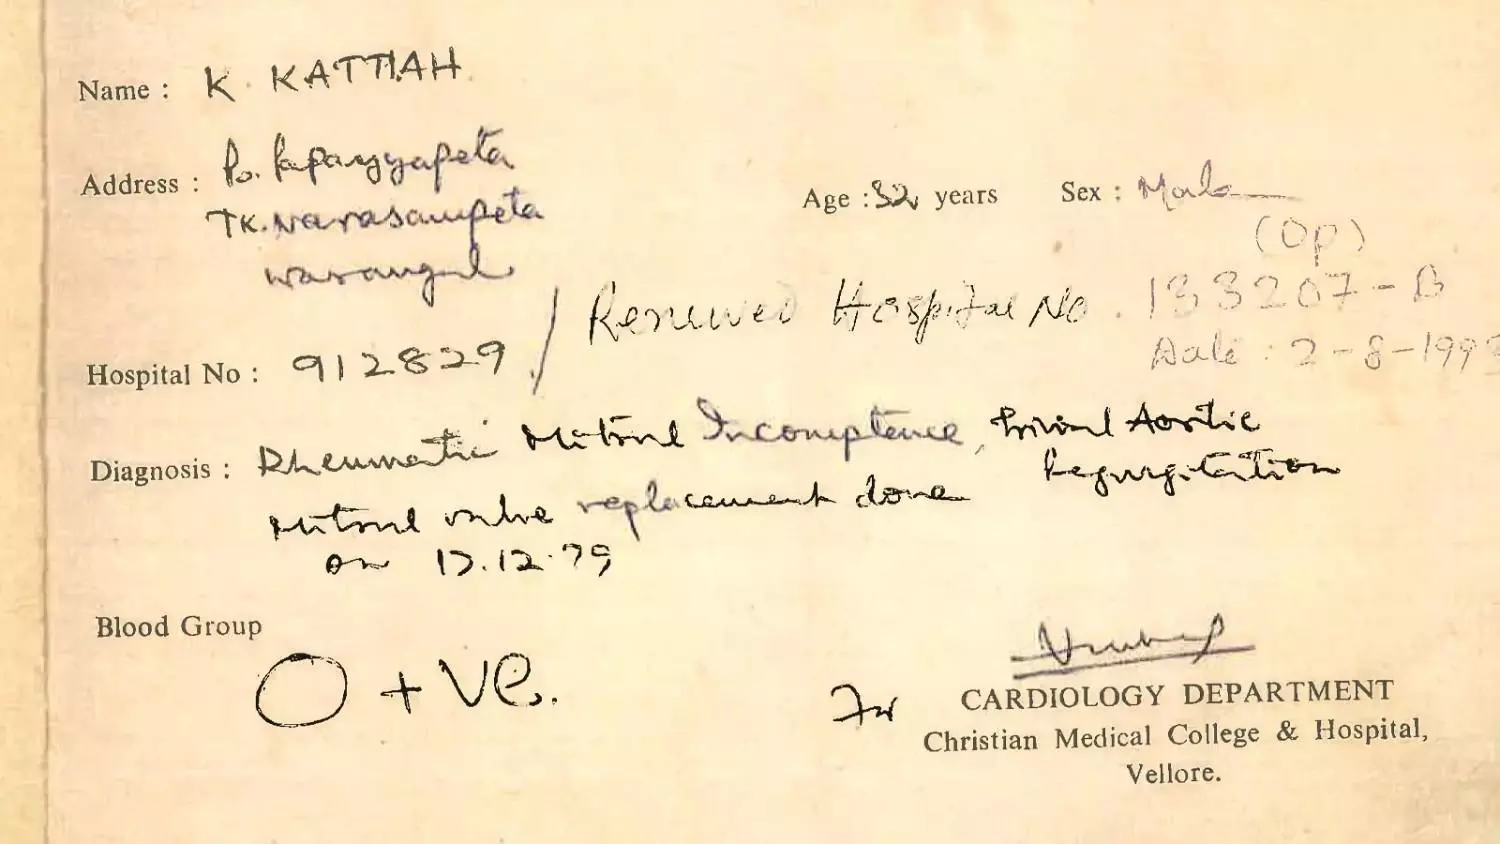 Name : K. KATTIAH
Address : Po. Papayyapeta
TK. Narasampeta
Warangal
Age : 32 years Sex : Male
(Op)
Hospital No : 912829 / Renewed Hospital No. 133207-B
Date : 2-8-199
Diagnosis : Rheumatic Mitral Incomptence, Trivial Aortic
Regurgitation
Mitral valve replacement done
on 17.12.79
Blood Group
O +ve.
For
CARDIOLOGY DEPARTMENT
Christian Medical College & Hospital,
Vellore.